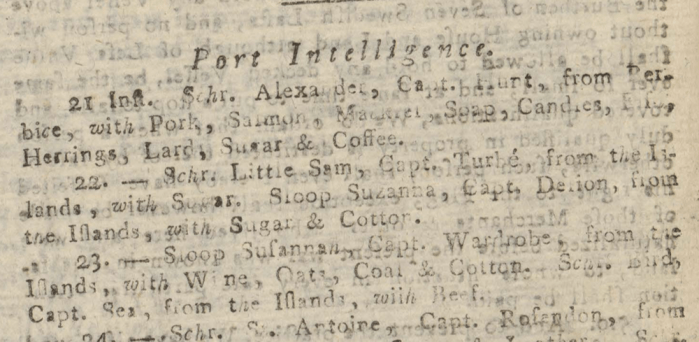 Port Intelligence.
21 Inst. Schr. Alexander, Capt. Hunt, from Ber-
bice, with Pork, Salmon, Mackrel, Soap, Candles,
Herrings, Lard, Sugar & Coffee.
22. — Schr. Little Sam, Capt. Turbé, from the Iſ-
lands, with Sugar. Sloop Suzanna, Capt. Delion, from
the Iſlands, with Sugar & Cotton.
23. — Sloop Suſannah, Capt. Wardrobe, from the
Iſlands, with Wine, Oats, Coal & Cotton. Schr. Bird,
Capt. Sea, from the Iſlands, with Beef.
24. — Schr. St. Antoine, Capt. Roſendon, from